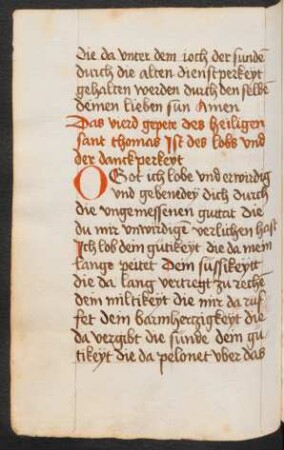 die da vnter dem ioch der sunde
durch die alten dienstperkeyt
gehalten werden durch den selbe
deinen lieben sun Amen
Das vierd gepete des heiligen
sant thomas Ist des lobs vnd
der danckperkeyt
O Got ich lobe vnd erwirdig
vnd gebenedey dich durch
die vngemessenen guttat die
du mir vnwirdigē verlichen hast
Ich lob dein gütikeyt die da mein
lange peitet Dein süssikeytt
die da lang vertregt zu reche
dein miltikeyt die mir da ruf
fet dein barmhertzigkeyt die
da vergibt die sunde dein gü
tikeyt die da pelonet vber das